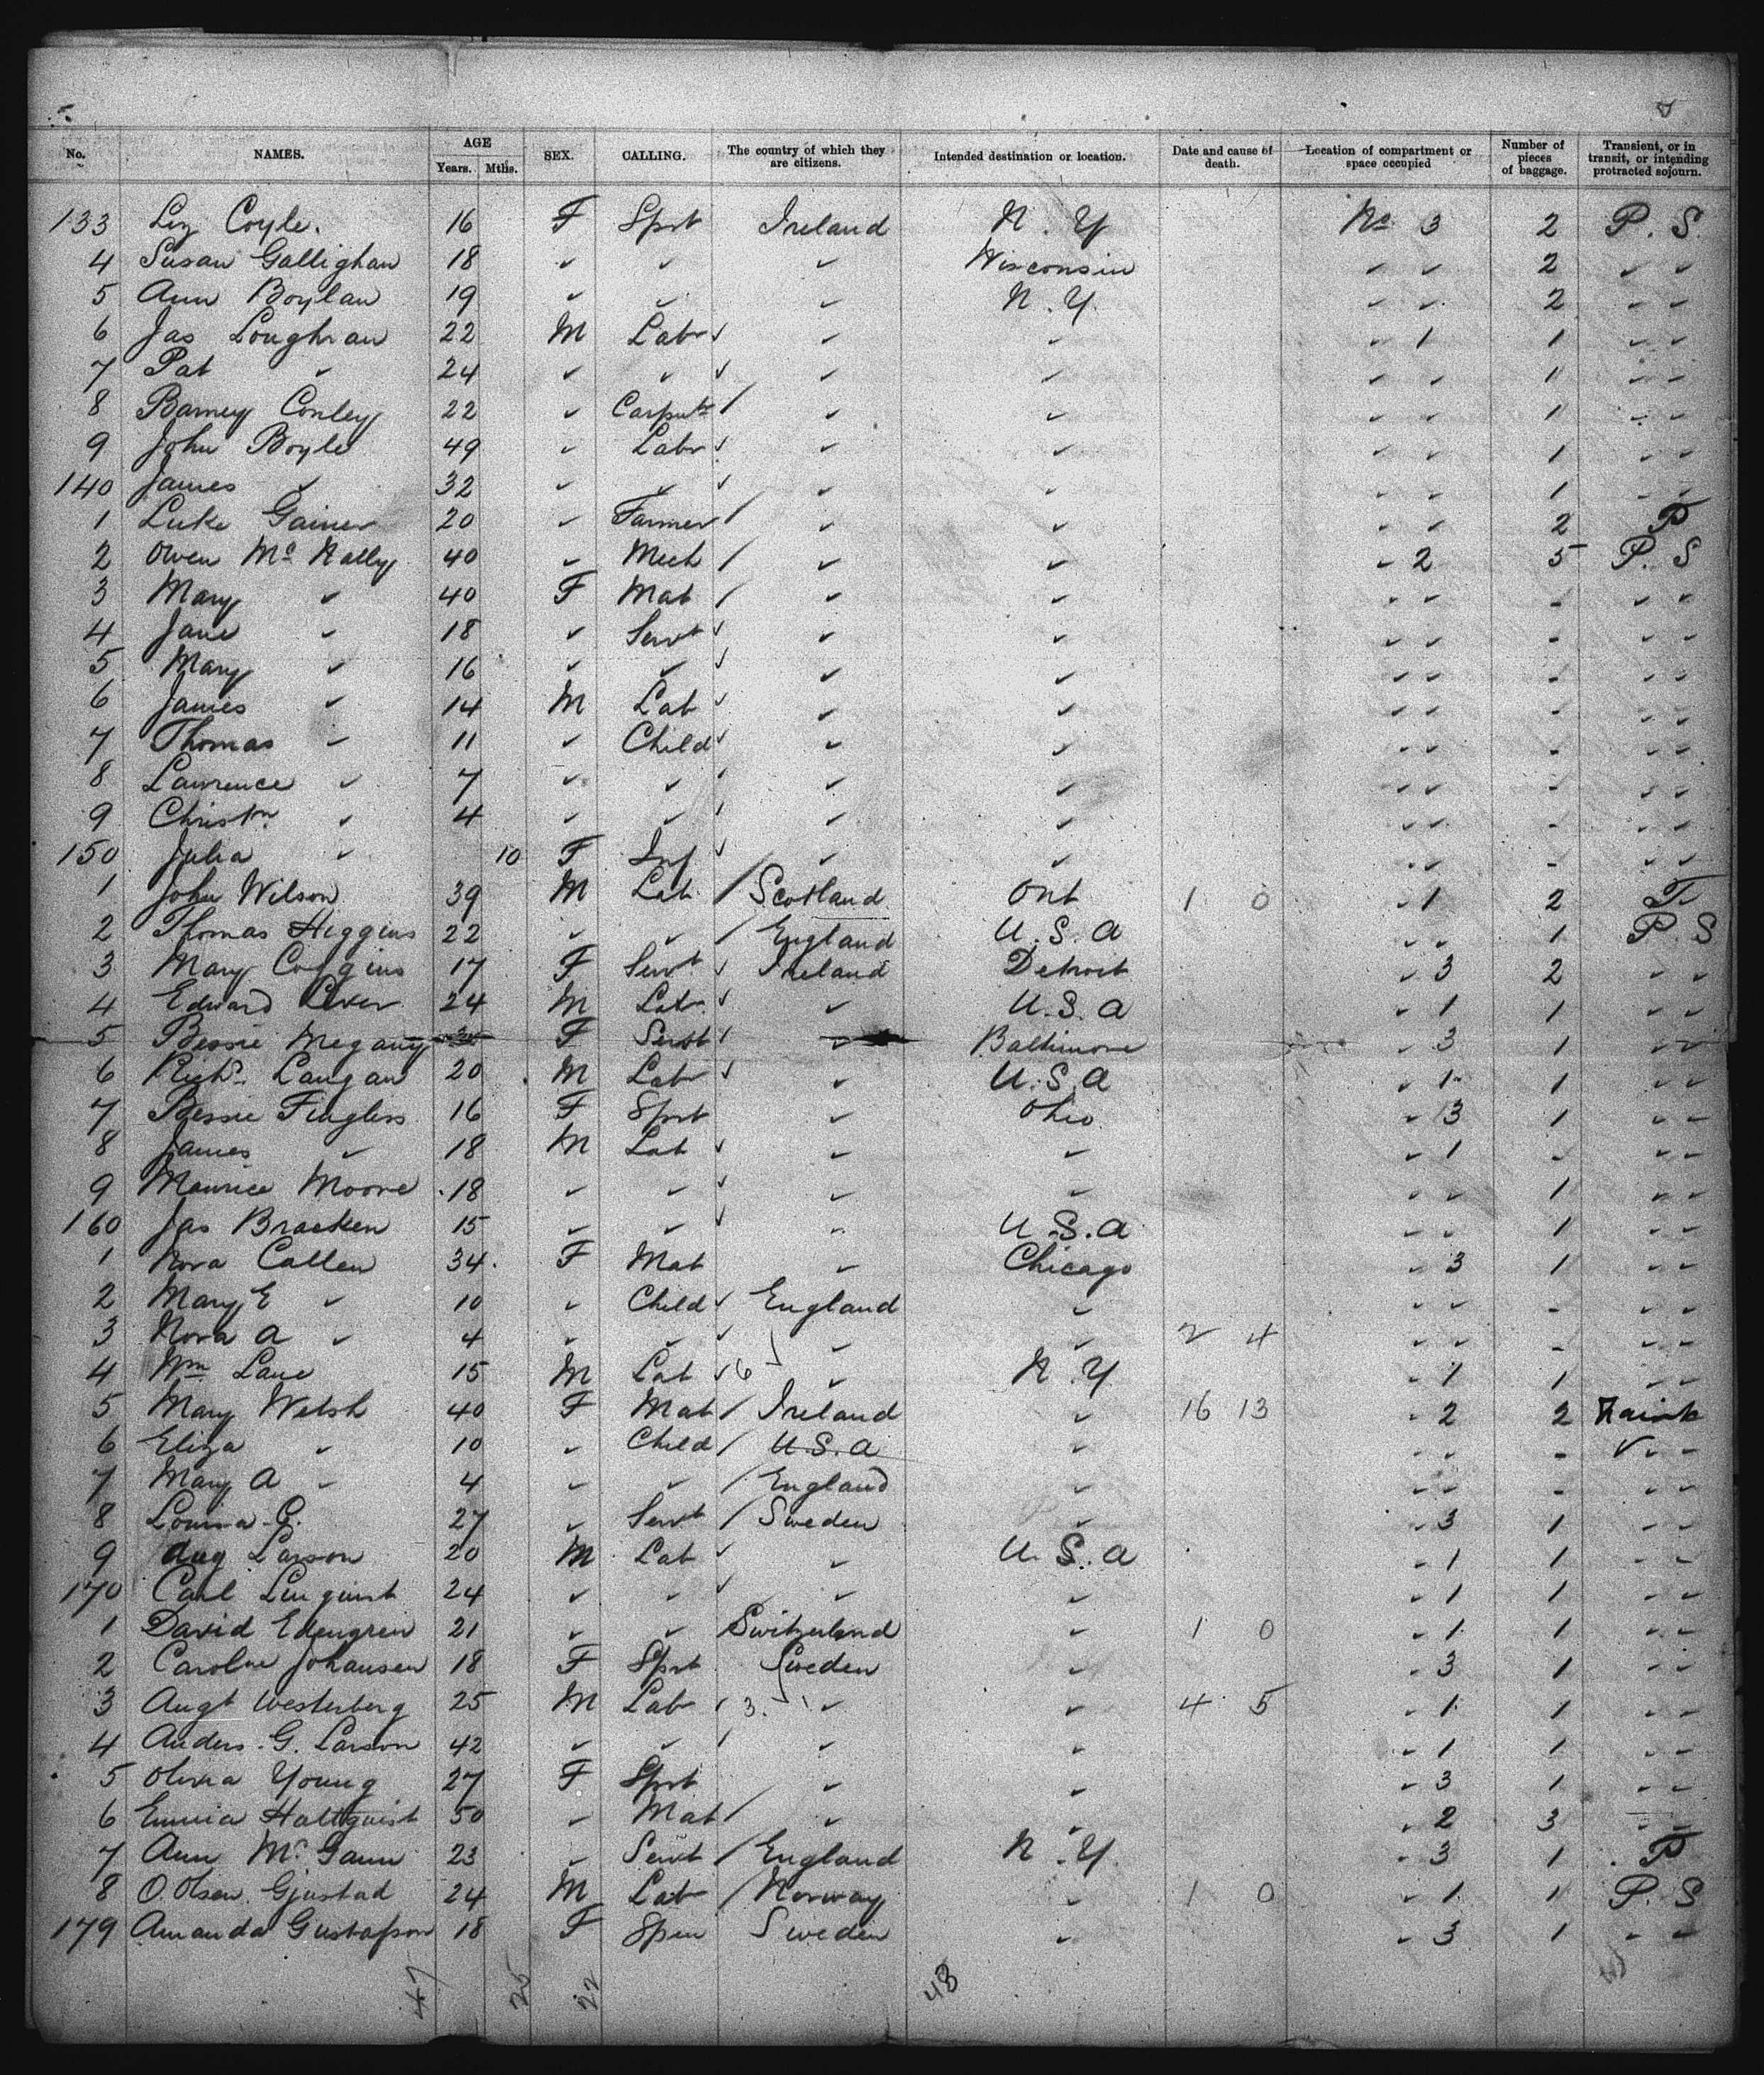 No. NAMES. AGE Years. Mths. SEX. CALLING. The country of which they are citizens. Intended destination or location. Date and cause of death. Location of compartment or space occupied Number of pieces of baggage. Transient, or in transit, or intending protracted sojourn.
133 Liz Coyle. 16 F Spst Ireland N. Y No 3 2 P. S.
4 Susan Gallighan 18 ✓ ✓ ✓ Wisconsin ✓ ✓ 2 ✓ ✓
5 Ann Boylan 19 ✓ ✓ ✓ N. Y. ✓ ✓ 2 ✓ ✓
6 Jas Loughran 22 M Labr ✓ ✓ ✓ ✓ 1 1 ✓ ✓
7 Pat ✓ 24 ✓ ✓ ✓ ✓ ✓ ✓ ✓ 1 ✓ ✓
8 Barney Conley 22 ✓ Carpntr / ✓ ✓ ✓ ✓ 1 ✓ ✓
9 John Boyle 49 ✓ Labr ✓ ✓ ✓ ✓ ✓ 1 ✓ ✓
140 James ✓ 32 ✓ ✓ ✓ ✓ ✓ ✓ ✓ 1 ✓ ✓
1 Luke Gainer 20 ✓ Farmer / ✓ ✓ ✓ ✓ 2 P
2 Owen Mc Nally 40 ✓ Mech / ✓ ✓ ✓ 2 5 P. S
3 Mary ✓ 40 F Mat / ✓ ✓ ✓ ✓ - ✓ ✓
4 Jane ✓ 18 ✓ Servt ✓ ✓ ✓ ✓ ✓ - ✓ ✓
5 Mary ✓ 16 ✓ ✓ ✓ ✓ ✓ ✓ ✓ - ✓ ✓
6 James ✓ 14 M Lab ✓ ✓ ✓ ✓ ✓ - ✓ ✓
7 Thomas ✓ 11 ✓ Child ✓ ✓ ✓ ✓ ✓ - ✓ ✓
8 Lawrence ✓ 7 ✓ ✓ ✓ ✓ ✓ ✓ ✓ - ✓ ✓
9 Christn ✓ 4 ✓ ✓ ✓ ✓ ✓ ✓ ✓ - ✓ ✓
150 Julia ✓ 10 F Inf ✓ ✓ ✓ ✓ ✓ - ✓ ✓
1 John Wilson 39 M Lab / Scotland Ont 1 0 ✓ 1 2 T
2 Thomas Higgins 22 ✓ ✓ / England U. S. A ✓ ✓ 1 P. S
3 Mary Coggins 17 F Servt ✓ Ireland Detroit ✓ 3 2 ✓ ✓
4 Edward 24 M Lab ✓ ✓ U. S. A ✓ 1 1 ✓ ✓
5 Bessie Megany F Servt / ✓ Baltimore ✓ 3 1 ✓ ✓
6 Richd Langan 20 M Lab ✓ ✓ U. S. A ✓ 1 1 ✓ ✓
7 Bessie Fingliss 16 F Spst ✓ Ohio ✓ 3 1 ✓ ✓
8 James ✓ 18 M Lab ✓ ✓ ✓ ✓ 1 - ✓ ✓
9 Maurice Moore 18 ✓ ✓ ✓ ✓ ✓ ✓ ✓ 1 ✓ ✓
160 Jas Bracken 15 ✓ ✓ ✓ ✓ U. S. A ✓ ✓ 1 ✓ ✓
1 Nora Callen 34 F Mat ✓ Chicago ✓ 3 1 ✓ ✓
2 Mary E ✓ 10 ✓ Child ✓ England ✓ ✓ ✓ - ✓ ✓
3 Nora A ✓ 4 ✓ ✓ ✓ ✓ ✓ 2 4 ✓ ✓ - ✓ ✓
4 Wm Lane 15 M Lab ✓ 6 ✓ N. Y. ✓ 1 1 ✓ ✓
5 Mary Welsh 40 F Mat / Ireland ✓ 16 13 ✓ 2 2
6 Eliza ✓ 10 ✓ Child / U. S. A ✓ ✓ ✓ - ✓ ✓
7 Mary A ✓ 4 ✓ ✓ / England ✓ ✓ ✓ - ✓ ✓
8 Louisa C. 27 ✓ Servt / Sweden ✓ ✓ 3 1 ✓ ✓
9 Aug Larson 20 M Lab ✓ ✓ U. S. A ✓ 1 1 ✓ ✓
170 Carl Linquist 24 ✓ ✓ ✓ ✓ ✓ ✓ 1 1 ✓ ✓
1 David Edengrein 21 ✓ ✓ Switzerland ✓ 1 0 ✓ 1 1 ✓ ✓
2 Caroline Johansen 18 F Spst Sweden ✓ ✓ 3 1 ✓ ✓
3 Augt Westerberg 25 M Lab / 3 ✓ ✓ 4 5 ✓ 1 1 ✓ ✓
4 Anders. G. Larson 42 ✓ ✓ / ✓ ✓ ✓ 1 1 ✓ ✓
5 Olivia Young 27 F Spst ✓ ✓ ✓ 3 1 ✓ ✓
6 Emma Hallquist 50 ✓ Mat / ✓ ✓ ✓ 2 3 ✓ ✓
7 Ann Mc Gann 23 ✓ Servt / England N. Y. ✓ 3 1 P
8 O. Olsen Gjustad 24 M Lab / Norway ✓ 1 0 ✓ 1 1 P. S
179 Amanda Gustafson 18 F Spin Sweden ✓ ✓ 3 1 ✓ ✓
47 25 22 48